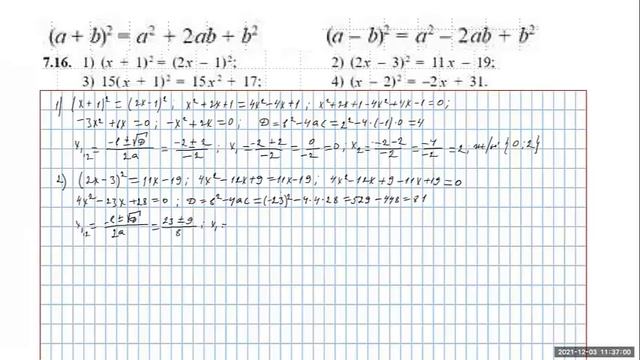 (a + b)² = a² + 2ab + b² (a − b)² = a² − 2ab + b²
7.16. 1) (x + 1)² = (2x − 1)²; 2) (2x − 3)² = 11x − 19;
3) 15(x + 1)² = 15x² + 17; 4) (x − 2)² = −2x + 31.
1) (x+1)² = (2x-1)²; x²+2x+1 = 4x²-4x+1; x²+2x+1-4x²+4x-1=0;
-3x²+6x=0; -x²+2x=0; D=b²-4ac=2²-4·(-1)·0=4
x₁,₂ = (-b±√D)/2a = (-2±2)/-2; x₁ = (-2+2)/-2 = 0/-2 = 0; x₂ = (-2-2)/-2 = -4/-2 = 2, {0; 2}
2) (2x-3)² = 11x-19; 4x²-12x+9=11x-19; 4x²-12x+9-11x+19=0
4x²-23x+28=0; D=b²-4ac=(-23)²-4·4·28=529-448=81
x₁,₂ = (-b±√D)/2a = (23±9)/8; x₁=
2021-12-03 11:37:00